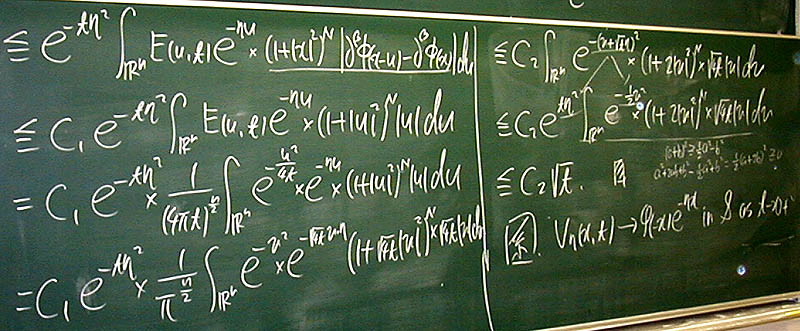 ≦ e^{-tη²} ∫_{ℝⁿ} E(u,t) e^{-ηu} × (1+|x|²)^N |∂^β φ(x-u) - ∂^β φ(x)| du
≦ C₁ e^{-tη²} ∫_{ℝⁿ} E(u,t) e^{-ηu} × (1+|u|²)^N |u| du
= C₁ e^{-tη²} × 1/(4πt)^{n/2} ∫_{ℝⁿ} e^{-u²/4t} × e^{-ηu} × (1+|u|²)^N |u| du
= C₁ e^{-tη²} × 1/π^{n/2} ∫_{ℝⁿ} e^{-u²} × e^{-√4t u·η} (1+√4t |u|²)^N × √4t |u| du
≦ C₂ ∫_{ℝⁿ} e^{-(u+√t η)²} × (1+2|u|²)^N × √t |u| du
≦ C₂ e^{tη²} ∫_{ℝⁿ} e^{-½u²} × (1+2|u|²)^N × √t |u| du
(a+b)² ≧ ½a² - b²
≦ C₂ √t.
a²+2ab+b² - ½a² + b² = ½(a+2b)² ≧ 0
系. V_η(x,t) → φ(x) e^{-ηx} in S as t→0+